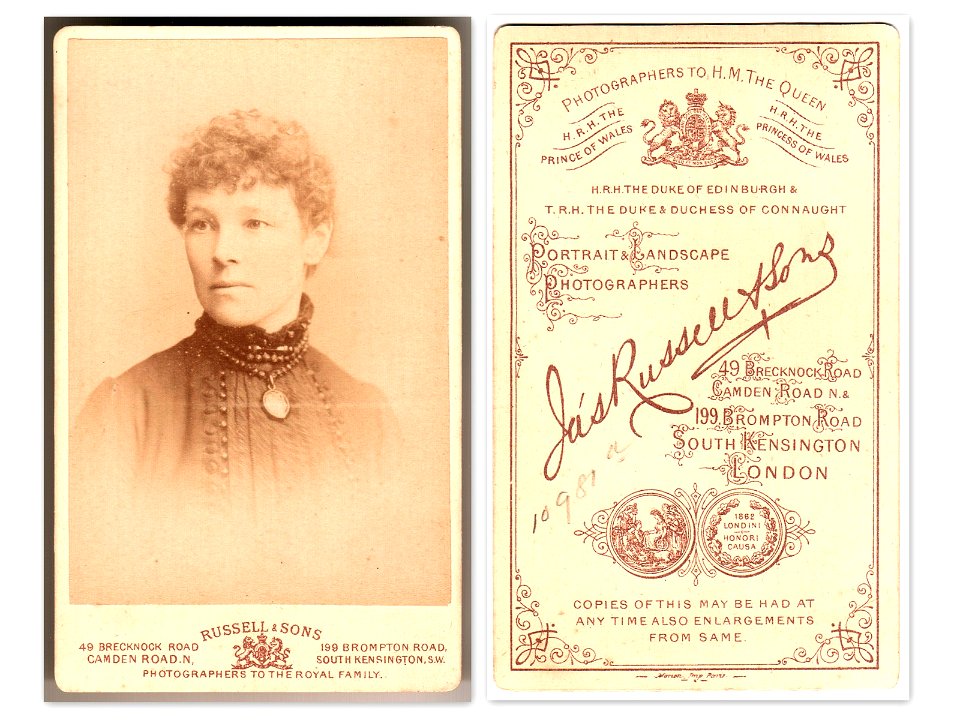 RUSSELL & SONS
49 BRECKNOCK ROAD
CAMDEN ROAD.N,
199 BROMPTON ROAD,
SOUTH KENSINGTON, S.W.
PHOTOGRAPHERS TO THE ROYAL FAMILY.
PHOTOGRAPHERS TO H.M. THE QUEEN
H.R.H. THE
PRINCE OF WALES
H.R.H. THE
PRINCESS OF WALES
H.R.H. THE DUKE OF EDINBURGH &
T.R.H. THE DUKE & DUCHESS OF CONNAUGHT
PORTRAIT & LANDSCAPE
PHOTOGRAPHERS
Jas Russell & Sons
49 BRECKNOCK ROAD
CAMDEN ROAD N. &
199, BROMPTON ROAD
SOUTH KENSINGTON
LONDON
10981
1862
LONDINI
HONORIS
CAUSA
COPIES OF THIS MAY BE HAD AT
ANY TIME ALSO ENLARGEMENTS
FROM SAME.
Marion Imp Paris